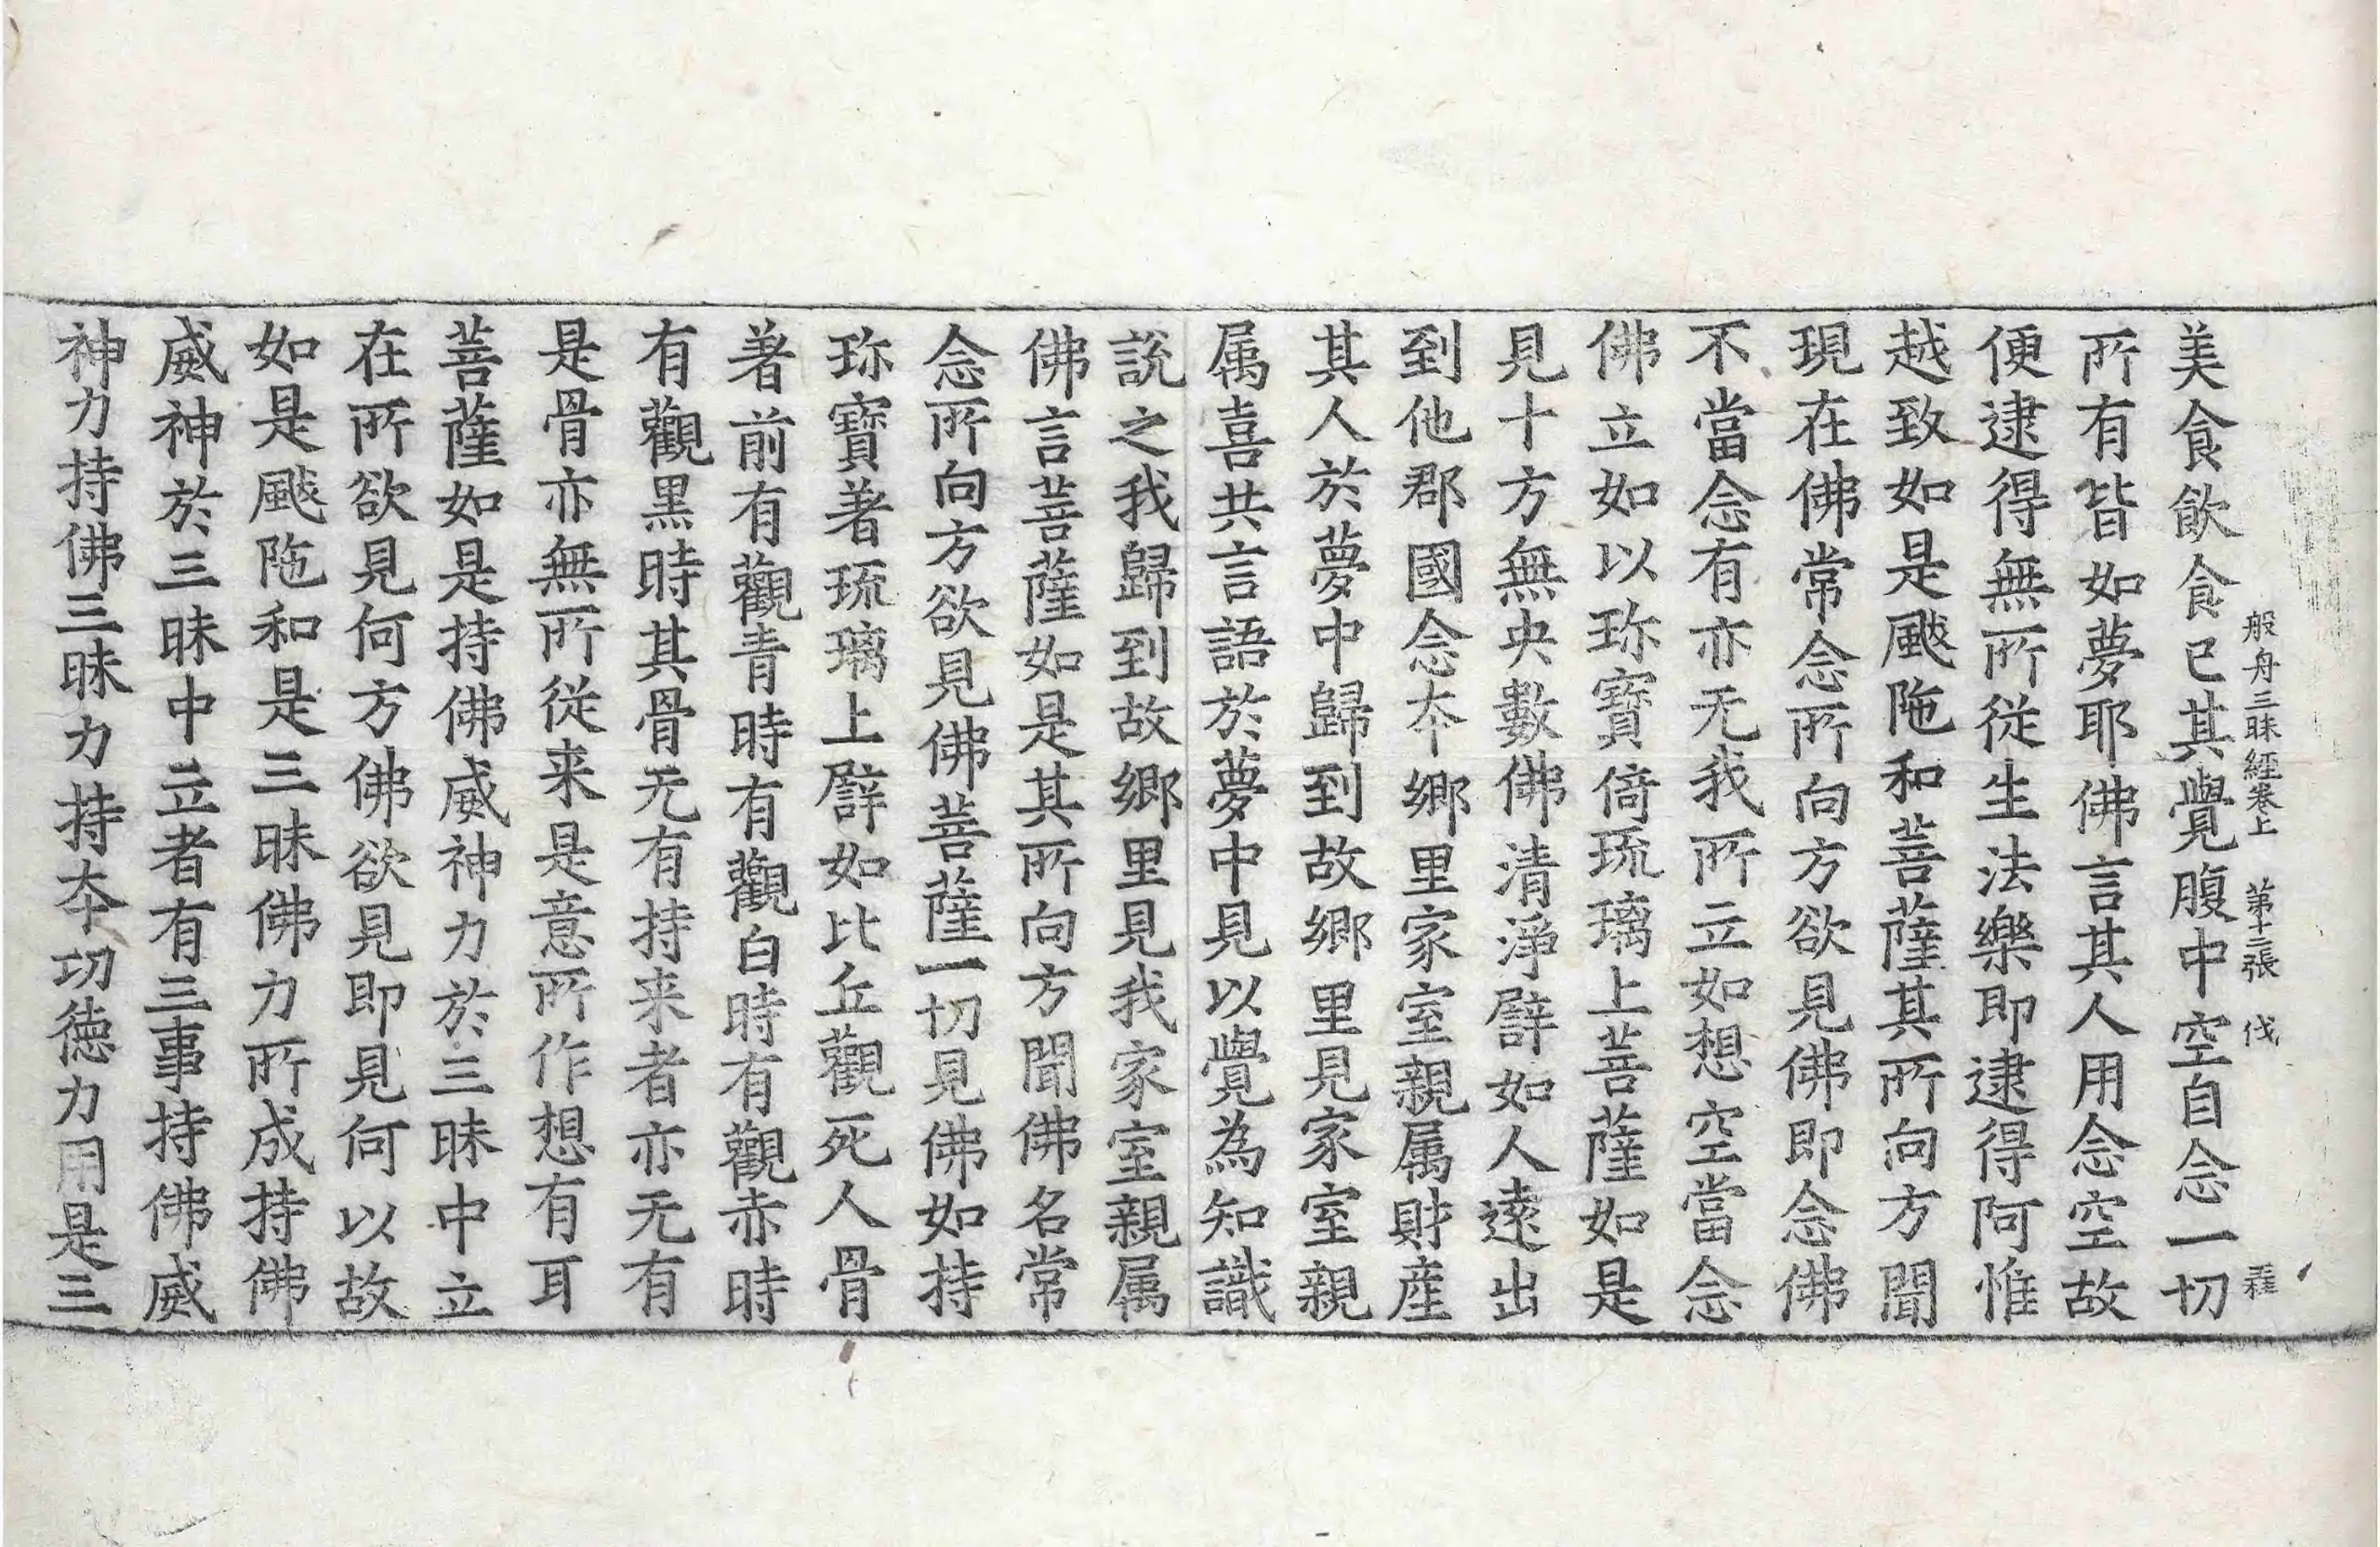 般舟三昧經卷上 第十二張 伐
美食飲食已其覺腹中空自念一切
所有皆如夢耶佛言其人用念空故
便逮得無所從生法樂即逮得阿惟
越致如是颰陁和菩薩其所向方聞
現在佛常念所向方欲見佛即念佛
不當念有亦无我所立如想空當念
佛立如以珎寶倚琉璃上菩薩如是
見十方無央數佛清淨譬如人遠出
到他郡國念夲鄉里家室親属財産
其人於夢中歸到故鄉里見家室親
属喜共言語於夢中見以覺為知識
說之我歸到故鄉里見我家室親属
佛言菩薩如是其所向方聞佛名常
念所向方欲見佛菩薩一切見佛如持
珎寶著琉璃上譬如比丘觀死人骨
著前有觀青時有觀白時有觀赤時
有觀黑時其骨无有持来者亦无有
是骨亦無所從来是意所作想有耳
菩薩如是持佛威神力於三昧中立
在所欲見何方佛欲見即見何以故
如是颰陁和是三昧佛力所成持佛
威神於三昧中立者有三事持佛威
神力持佛三昧力持夲功德力用是三